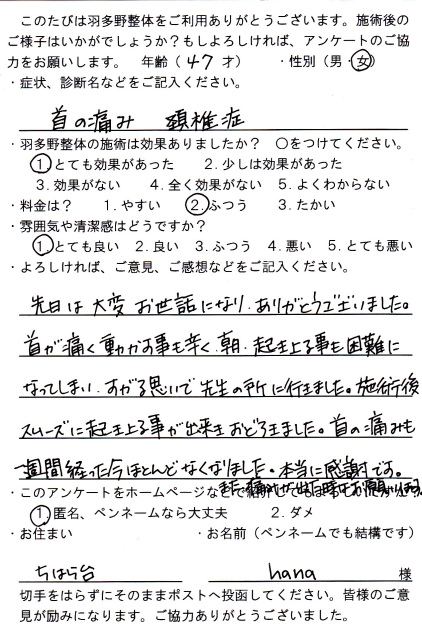 このたびは羽多野整体をご利用ありがとうございます。施術後の
ご様子はいかがでしょうか？もしよろしければ、アンケートのご協
力をお願いします。　年齢（47才）　・性別（男・女）
・症状、診断名などをご記入ください。
首の痛み　頚椎症
・羽多野整体の施術は効果ありましたか？　〇をつけてください。
1.とても効果があった　2.少しは効果があった
3.効果がない　4.全く効果がない　5.よくわからない
・料金は？　1.やすい　2.ふつう　3.たかい
・雰囲気や清潔感はどうですか？
1.とても良い　2.良い　3.ふつう　4.悪い　5.とても悪い
・よろしければ、ご意見、ご感想などをご記入ください。
先日は大変お世話になり、ありがとうございました。
首が痛く動かす事も辛く、朝、起き上る事も困難に
なってしまい、すがる思いで先生の所に行きました。施術後
スムーズに起き上る事が出来おどろきました。首の痛みも
一週間経った今ほとんどなくなりました。本当に感謝です。
また、痛みが出た時はお願いします
・このアンケートをホームページなどで紹介しても
1.匿名、ペンネームなら大丈夫　2.ダメ
・お住まい　・お名前（ペンネームでも結構です）
ちはら台　hana　様
切手をはらずにそのままポストへ投函してください。皆様のご意
見が励みになります。ご協力ありがとうございました。